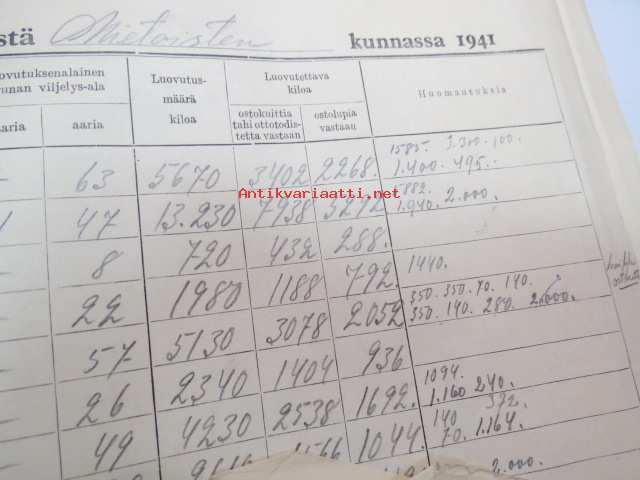 stä Mietoisten kunnassa 1941
ovutuksenalainen unan viljelys-ala
Luovutus-määrä kiloa
Luovutettava kiloa
Huomautuksia
aaria
aaria
ostokuittia tahi ottotodis-tetta vastaan
ostolupia vastaan
63 5670 3402 2268. 1585. 3.300. 100.
1.400. 495.
47 13.230 7938 5292 882.
1.940. 2.000.
8 720 432 288.
22 1980 1188 792. 1440.
57 5130 3078 2052 350. 350. 70. 140.
350. 140. 280. 2.000.
26 2340 1404 936
49 4230 2538 1692. 1094.
1.160 240.
1566 1044. 140 392.
70. 1.164.
2.000.
Antikvariaatti.net